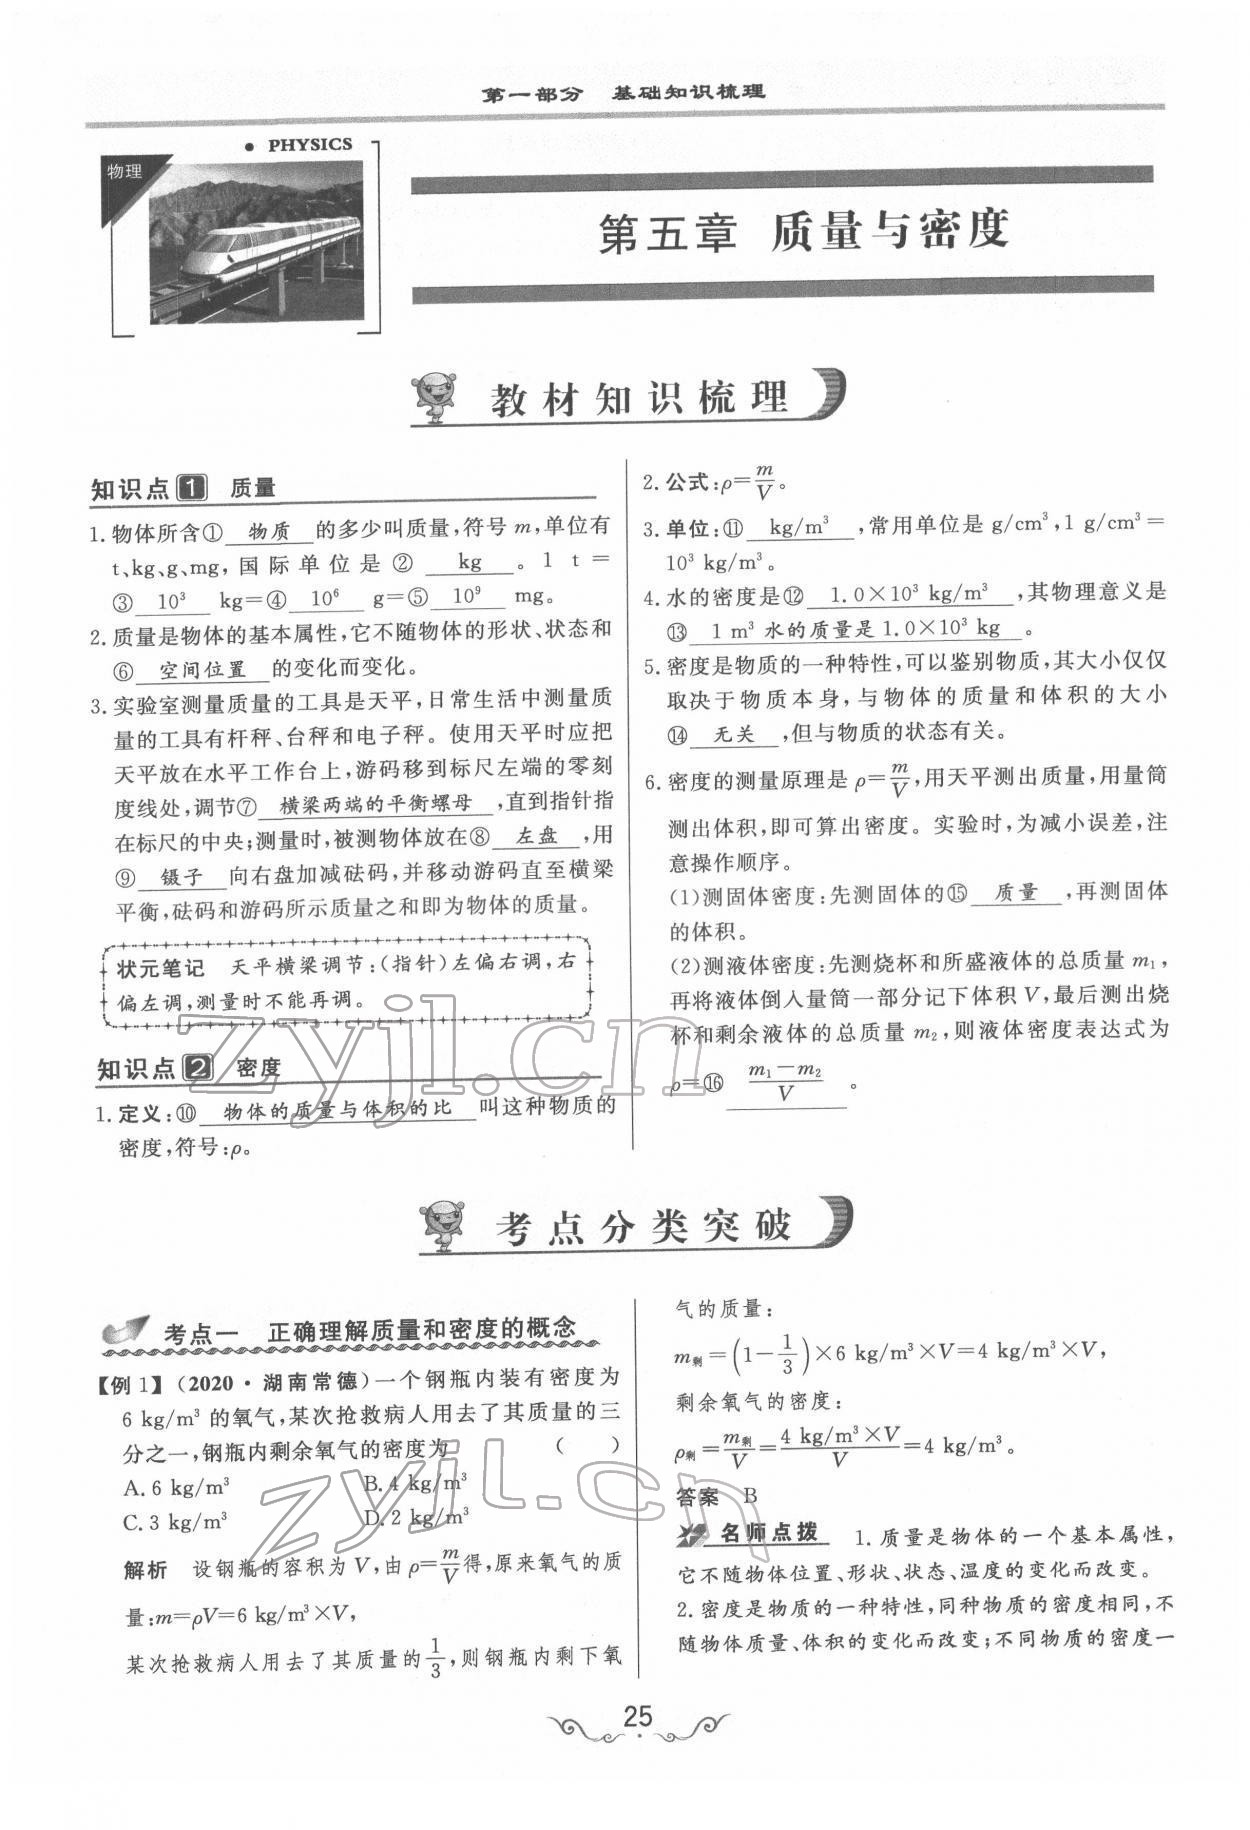 第一部分 基础知识梳理
• PHYSICS
物理
第五章 质量与密度
教材知识梳理
知识点1 质量
1. 物体所含① 物质 的多少叫质量,符号 m,单位有
t、kg、g、mg,国际单位是② kg 。1 t=
③ 10³ kg=④ 10⁶ g=⑤ 10⁹ mg。
2. 质量是物体的基本属性,它不随物体的形状、状态和
⑥ 空间位置 的变化而变化。
3. 实验室测量质量的工具是天平,日常生活中测量质
量的工具有杆秤、台秤和电子秤。使用天平时应把
天平放在水平工作台上,游码移到标尺左端的零刻
度线处,调节⑦ 横梁两端的平衡螺母 ,直到指针指
在标尺的中央;测量时,被测物体放在⑧ 左盘 ,用
⑨ 镊子 向右盘加减砝码,并移动游码直至横梁
平衡,砝码和游码所示质量之和即为物体的质量。
状元笔记 天平横梁调节:(指针)左偏右调,右
偏左调,测量时不能再调。
知识点2 密度
1. 定义:⑩ 物体的质量与体积的比 叫这种物质的
密度,符号:ρ。
2. 公式:ρ=m/V。
3. 单位:⑪ kg/m³ ,常用单位是 g/cm³,1 g/cm³=
10³ kg/m³。
4. 水的密度是⑫ 1.0×10³ kg/m³ ,其物理意义是
⑬ 1 m³ 水的质量是 1.0×10³ kg 。
5. 密度是物质的一种特性,可以鉴别物质,其大小仅仅
取决于物质本身,与物体的质量和体积的大小
⑭ 无关 ,但与物质的状态有关。
6. 密度的测量原理是 ρ=m/V,用天平测出质量,用量筒
测出体积,即可算出密度。实验时,为减小误差,注
意操作顺序。
(1)测固体密度:先测固体的⑮ 质量 ,再测固体
的体积。
(2)测液体密度:先测烧杯和所盛液体的总质量 m₁,
再将液体倒入量筒一部分记下体积 V,最后测出烧
杯和剩余液体的总质量 m₂,则液体密度表达式为
ρ=⑯ (m₁−m₂)/V 。
考点分类突破
考点一 正确理解质量和密度的概念
【例 1】(2020·湖南常德)一个钢瓶内装有密度为
6 kg/m³ 的氧气,某次抢救病人用去了其质量的三
分之一,钢瓶内剩余氧气的密度为 ( )
A. 6 kg/m³ B. 4 kg/m³
C. 3 kg/m³ D. 2 kg/m³
解析 设钢瓶的容积为 V,由 ρ=m/V得,原来氧气的质
量:m=ρV=6 kg/m³×V,
某次抢救病人用去了其质量的1/3,则钢瓶内剩下氧
气的质量:
m剩=(1−1/3)×6 kg/m³×V=4 kg/m³×V,
剩余氧气的密度:
ρ剩=m剩/V=(4 kg/m³×V)/V=4 kg/m³。
答案 B
名师点拨 1. 质量是物体的一个基本属性,
它不随物体位置、形状、状态、温度的变化而改变。
2. 密度是物质的一种特性,同种物质的密度相同,不
随物体质量、体积的变化而改变;不同物质的密度一
25
zyjl.cn
zyjl.cn